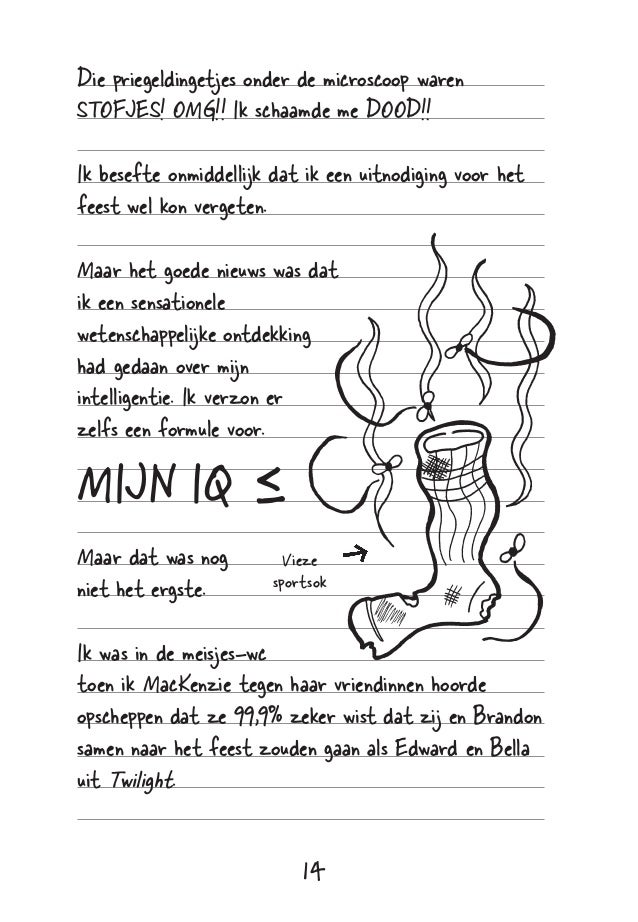 Die priegeldingetjes onder de microscoop waren
STOFJES! OMG!! Ik schaamde me DOOD!!
Ik besefte onmiddellijk dat ik een uitnodiging voor het
feest wel kon vergeten.
Maar het goede nieuws was dat
ik een sensationele
wetenschappelijke ontdekking
had gedaan over mijn
intelligentie. Ik verzon er
zelfs een formule voor.
MIJN IQ ≤
Maar dat was nog
niet het ergste.
Vieze
sportsok
Ik was in de meisjes-wc
toen ik MacKenzie tegen haar vriendinnen hoorde
opscheppen dat ze 99,9% zeker wist dat zij en Brandon
samen naar het feest zouden gaan als Edward en Bella
uit Twilight.
14